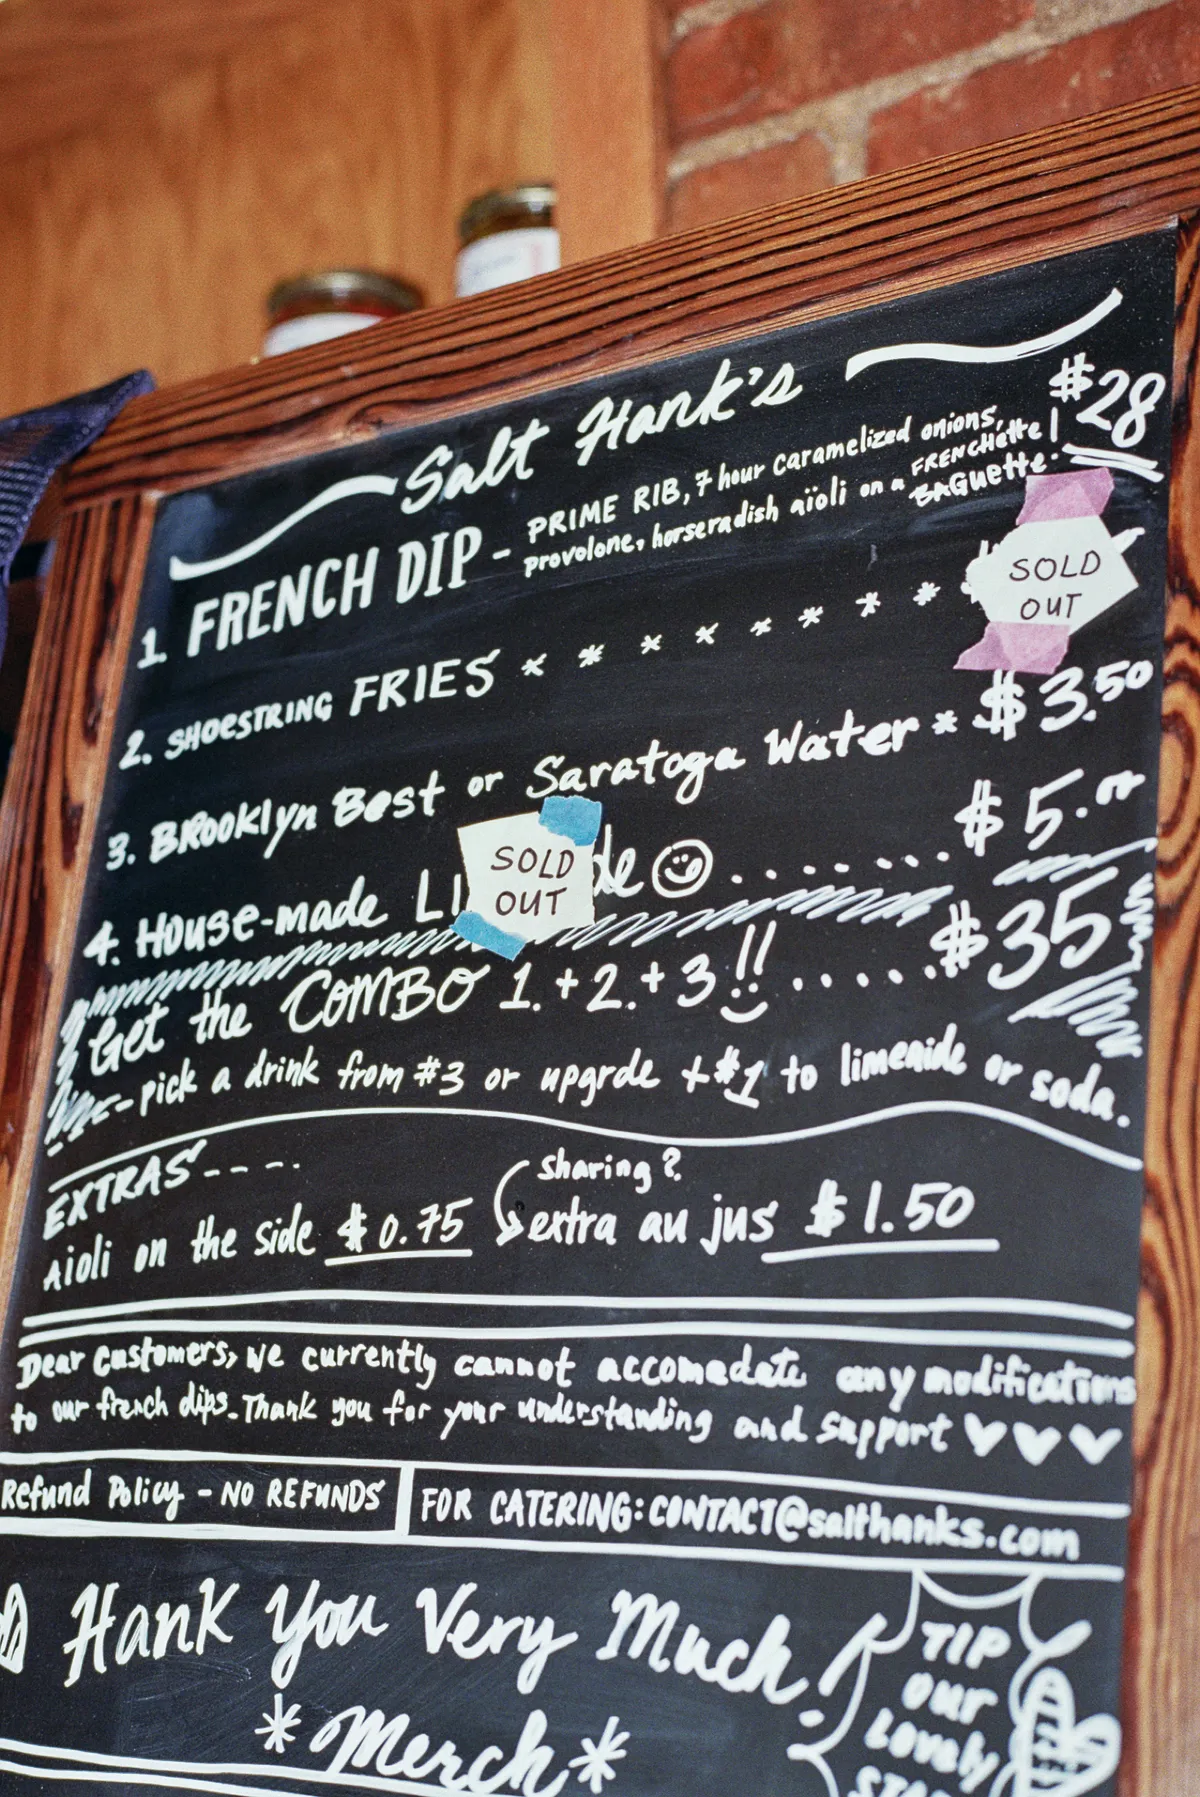 Salt Hank's
1. FRENCH DIP - PRIME RIB, 7 hour caramelized onions, $28
provolone, horseradish aïoli on a FRENCHette BAGuette.
2. SHOESTRING FRIES * * * * * * * * SOLD OUT
3. BROOKlyn Best or Saratoga Water * $3.50
4. House-made LI SOLD OUT de ........ $5.00
Get the COMBO 1.+2.+3!! ...... $35
- pick a drink from #3 or upgrde +$1 to limeaide or soda.
EXTRAS - - - -
sharing?
Aioli on the side $0.75 extra au jus $1.50
Dear Customers, We currently cannot accomadate any modifications
to our french dips. Thank you for your understanding and support
Refund Policy - NO REFUNDS FOR CATERING: CONTACT@salthanks.com
Hank You Very Much!
*Merch*
TIP
our
Lovely